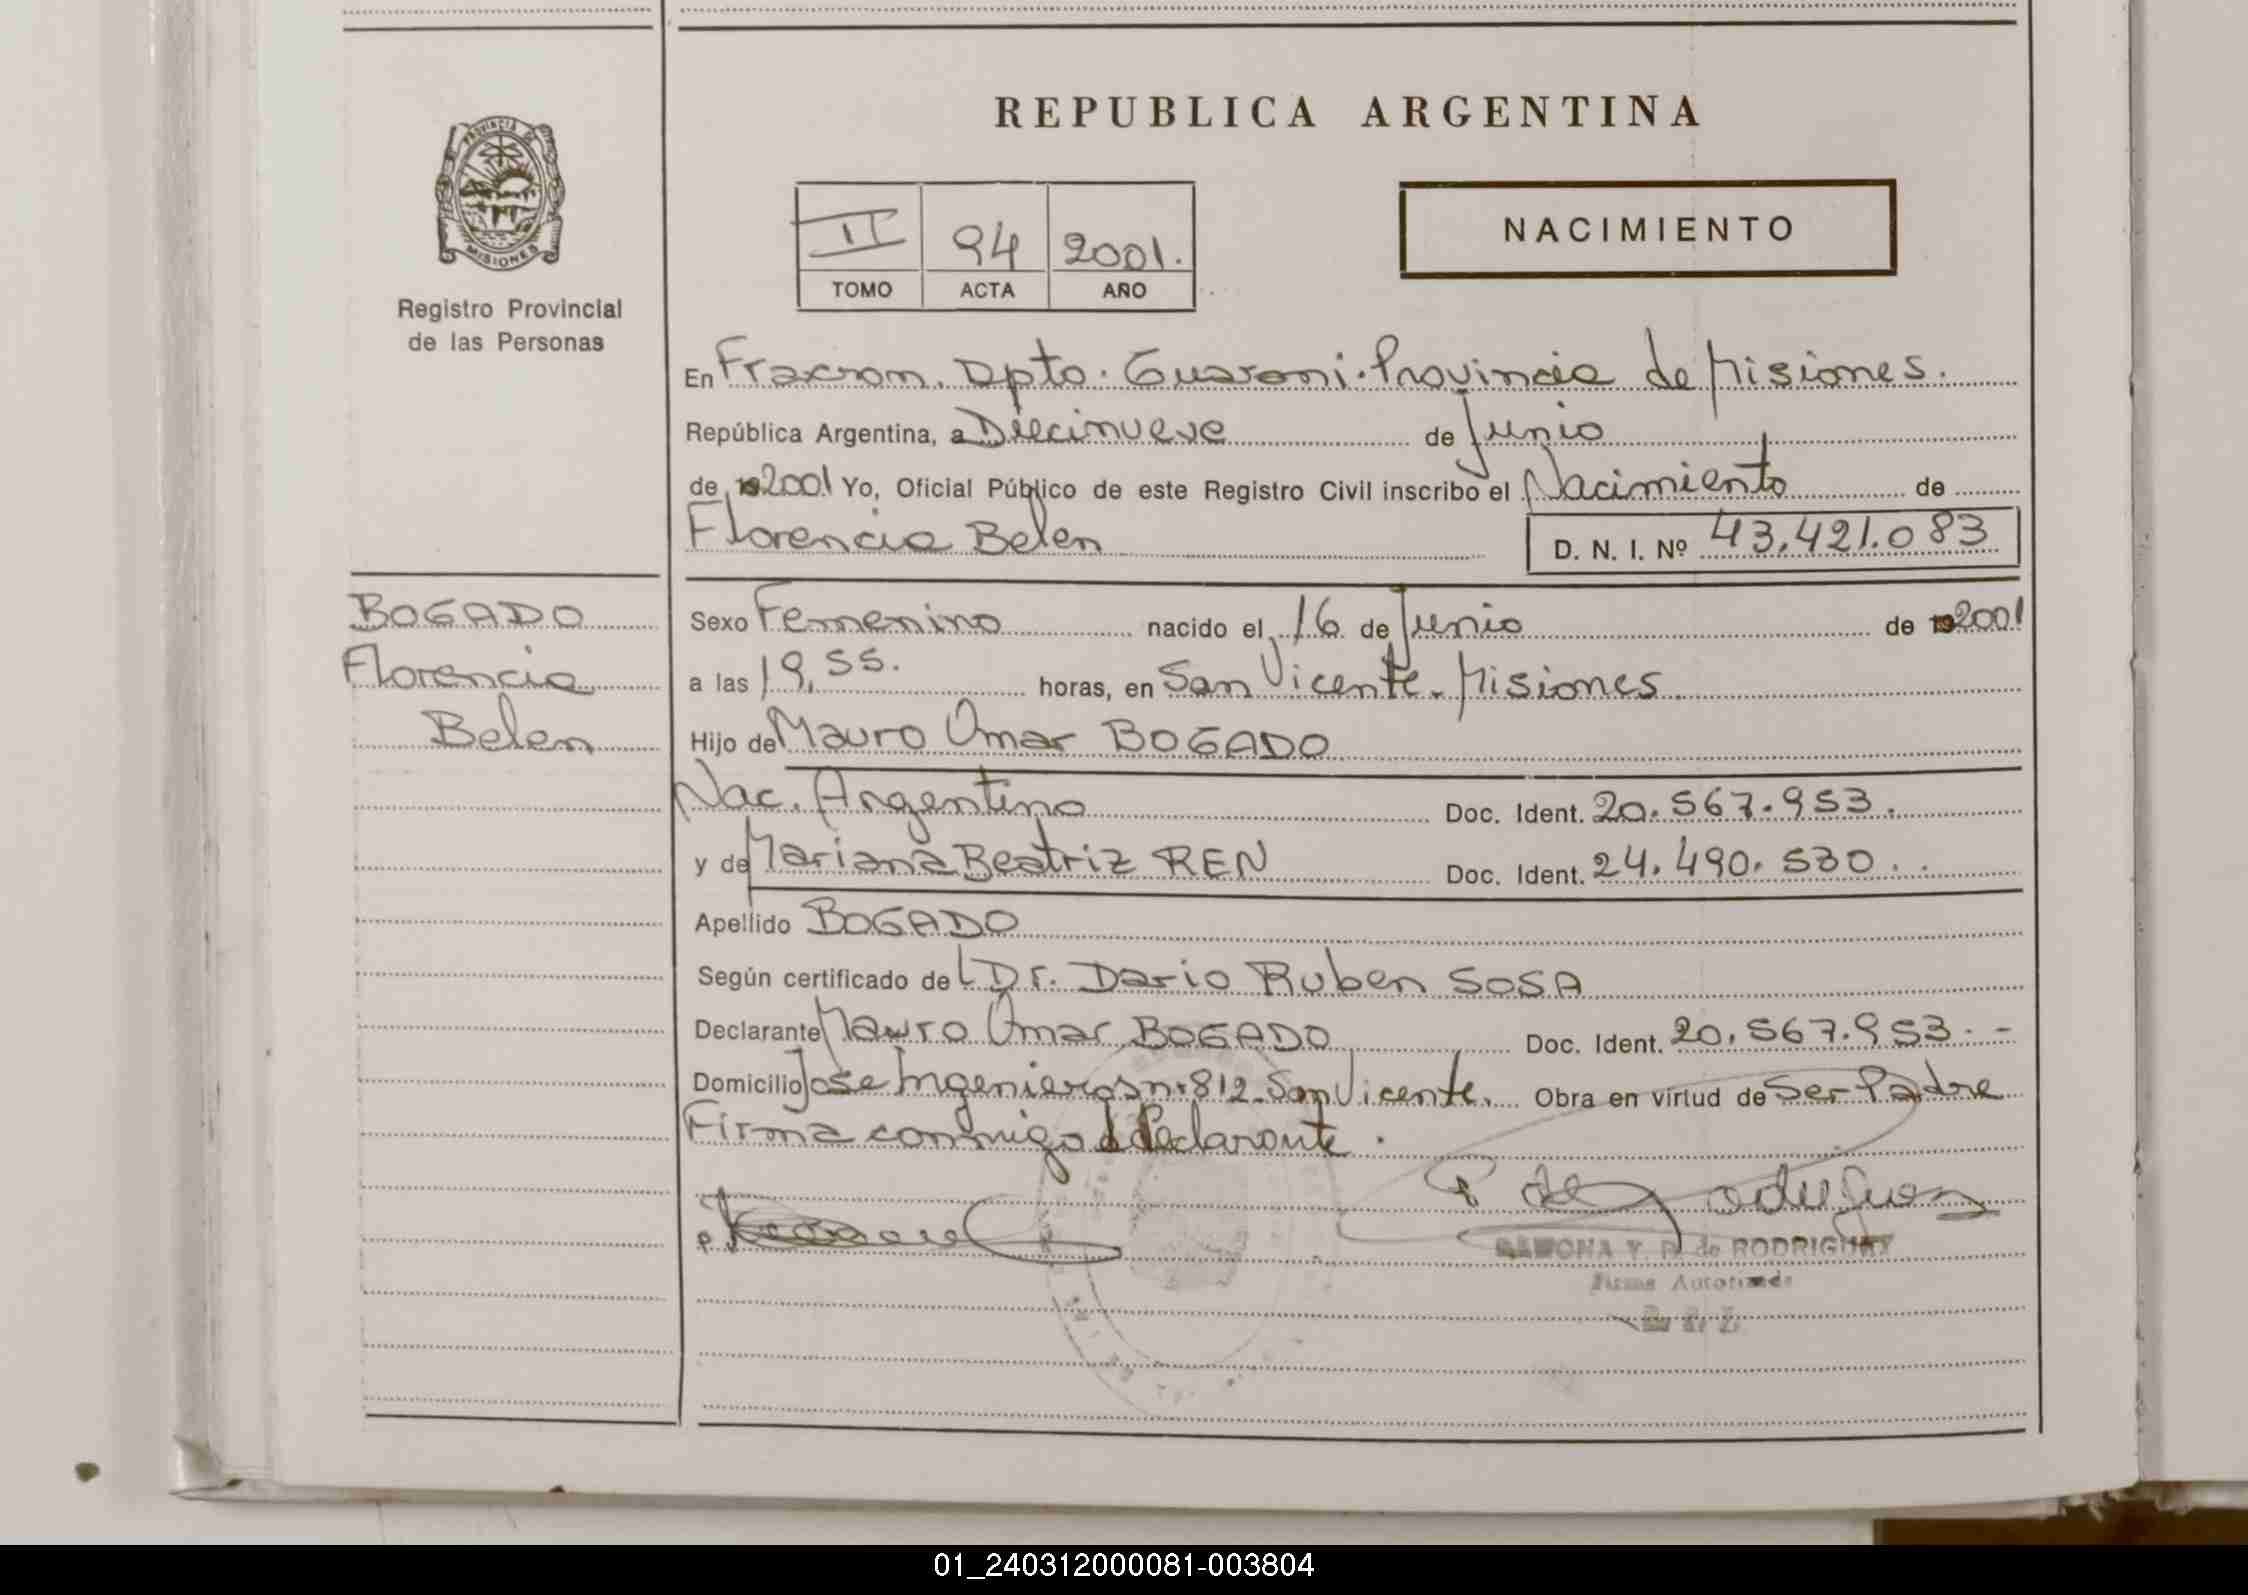 REPUBLICA ARGENTINA
PROVINCIA DE
MISIONES
Registro Provincial
de las Personas
II 94 2001.
TOMO ACTA AÑO
NACIMIENTO
En Fracrom. Dpto. Guaroni. Provincia de Misiones.
República Argentina, a Diecinueve de Junio
de 192001 Yo, Oficial Público de este Registro Civil inscribo el Nacimiento de
Florencia Belen
D. N. I. Nº 43.421.083
BOGADO
Florencia
Belen
Sexo Femenino nacido el 16 de Junio de 192001
a las 19,55. horas, en San Vicente. Misiones.
Hijo de Mauro Omar BOGADO
Nac. Argentino Doc. Ident. 20.567.953.
y de Mariana Beatriz REN Doc. Ident. 24.490.530..
Apellido BOGADO
Según certificado de Dr. Dario Ruben SOSA
Declarante Mauro Omar BOGADO Doc. Ident. 20.567.953.-
Domicilio Jose Ingenieros nº 812. San Vicente. Obra en virtud de Ser Padre
Firma conmigo el Declarante.
RAMONA Y. P. de RODRIGUEZ
Firma Autorizada
01_240312000081-003804